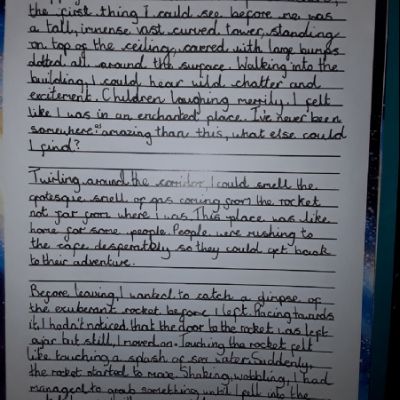 the first thing I could see before me was
a tall, immense vast curved tower, standing
on top of the ceiling, carred with large bumps
dotted all around the surface. Walking into the
building, I could hear wild chatter and
excitement. Children laughing merrily. I felt
like I was in an enchanted place. I've never been
somewhere as amazing than this, what else could
I find?
Twirling around the corridor, I could smell the
grotesque smell of gas coming from the rocket
not far from where I was. This place was like
home for some people. People were rushing to
the cafe desperately so they could get back
to their adventure.
Before leaving, I wanted to catch a glimpse of
the exuberant rocket before I left. Racing towards
it, I hadn't noticed that the door to the rocket was left
ajar but still, I moved on. Touching the rocket felt
like touching a splash of water. Suddenly,
the rocket started to move. Shaking, wobbling, I had
managed to grab something until I fell into the